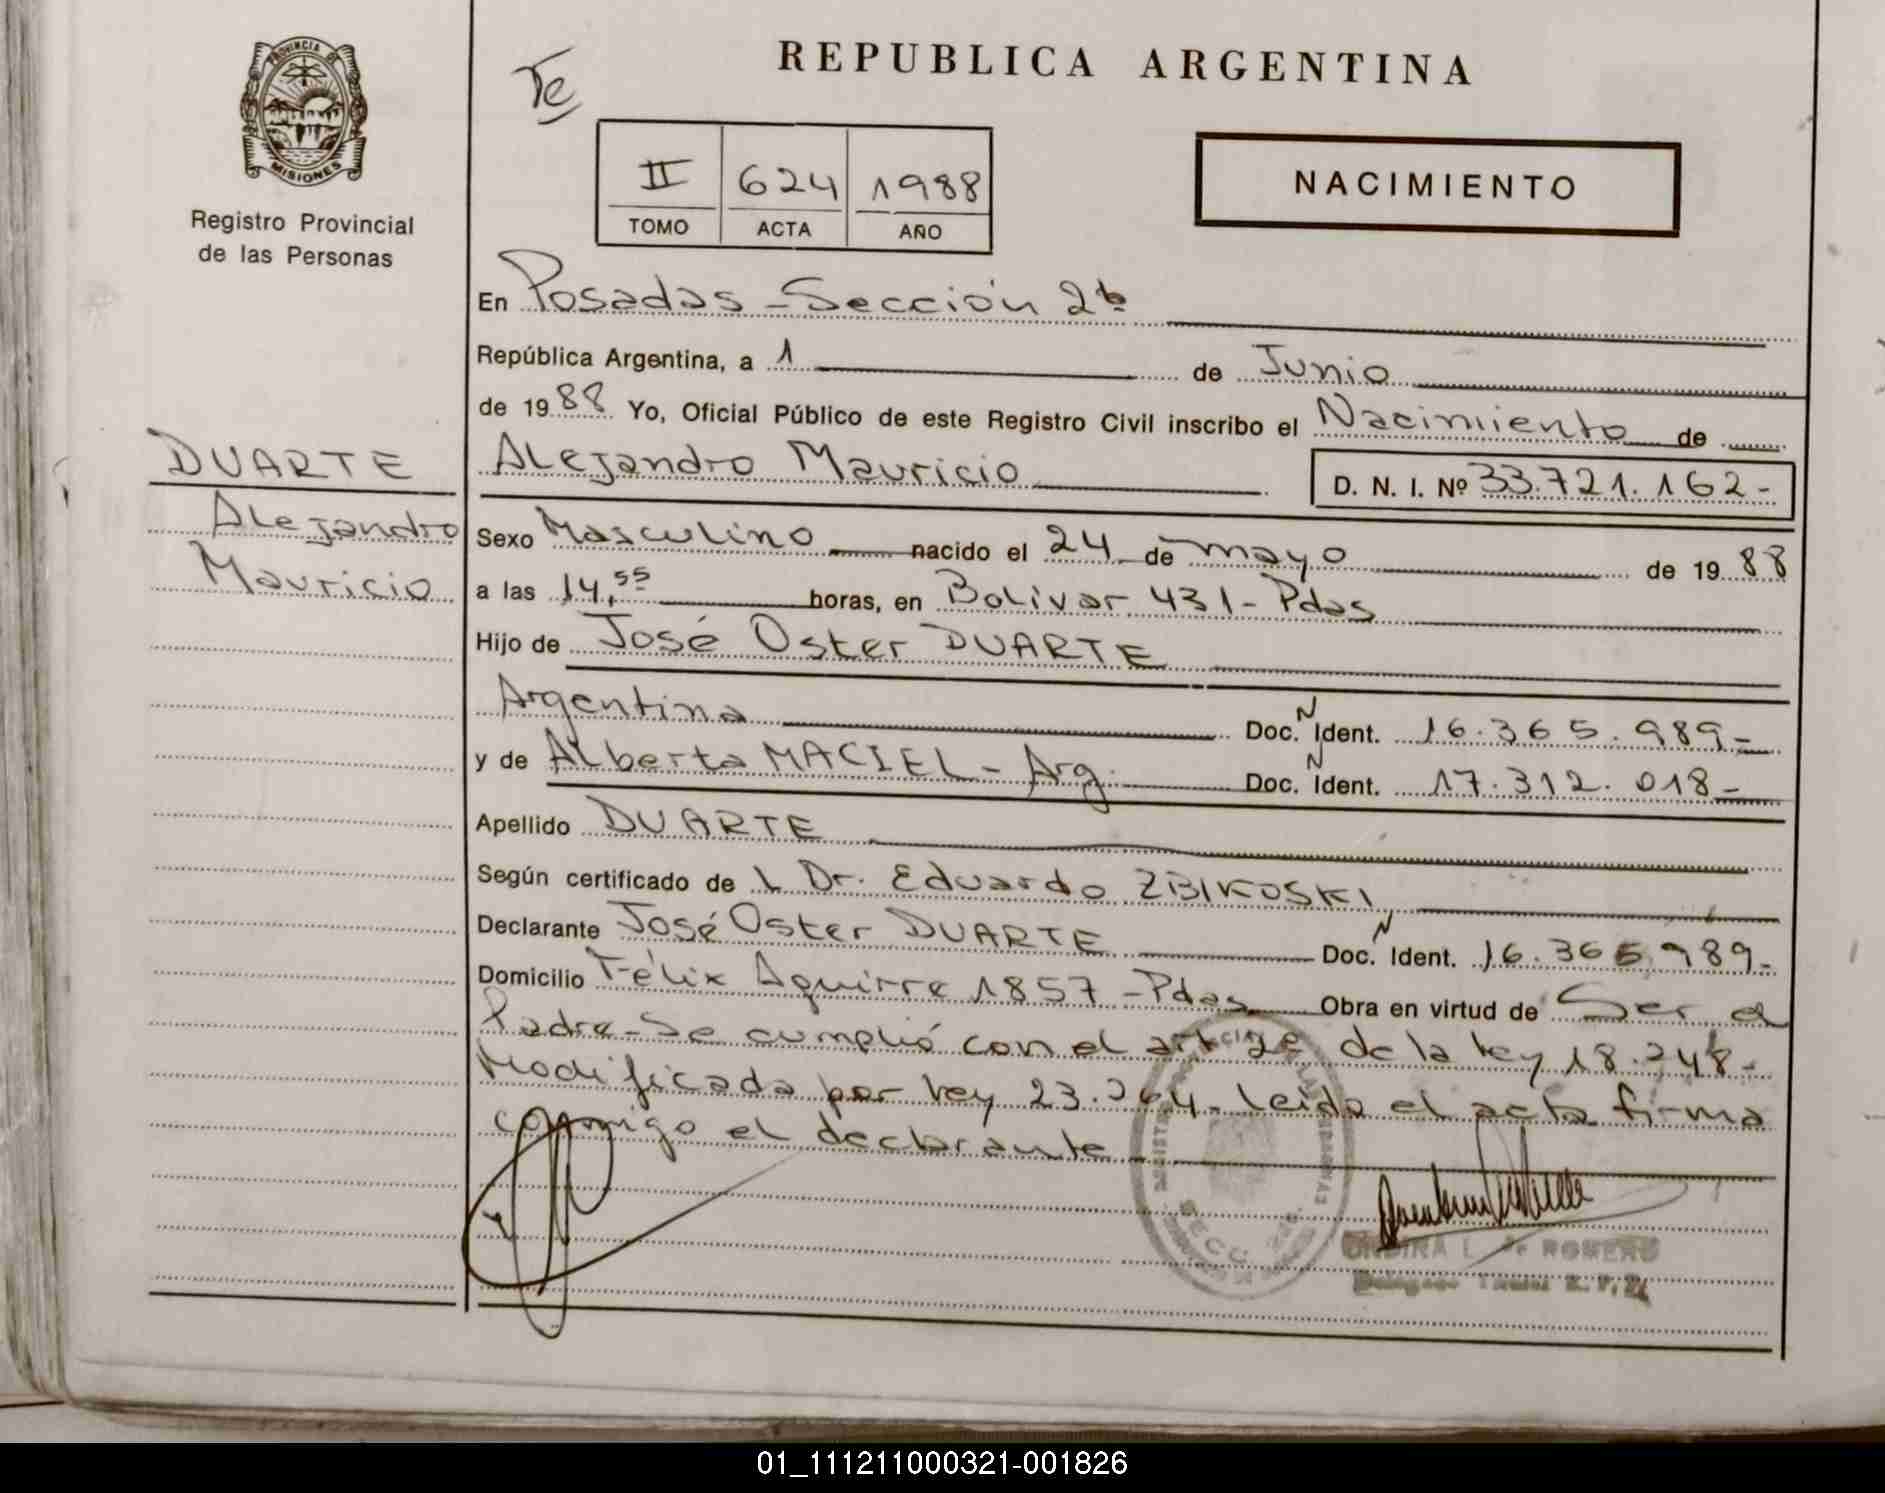 REPUBLICA ARGENTINA
Te
PROVINCIA DE
MISIONES
Registro Provincial
de las Personas
II 624 1988
TOMO ACTA AÑO
NACIMIENTO
En Posadas - Sección 2ª
República Argentina, a 1 de Junio
de 1988 Yo, Oficial Público de este Registro Civil inscribo el Nacimiento de
Alejandro Mauricio D. N. I. Nº 33.721.162-
DUARTE
Alejandro
Mauricio
Sexo Masculino nacido el 24 de mayo de 1988
a las 14,55 horas, en Bolivar 431 - Pdas
Hijo de José Oster DUARTE
Argentina Doc. N Ident. 16.365.989-
y de Alberta MACIEL - Arg. Doc. N Ident. 17.312.018-
Apellido DUARTE
Según certificado de l Dr. Eduardo ZBIKOSKI
Declarante José Oster DUARTE Doc. N Ident. 16.365.989-
Domicilio Félix Aguirre 1857 - Pdas Obra en virtud de Ser el
Padre - Se cumplió con el art 2º de la ley 18.248-
Modificada por ley 23.264. Leído el acta firma
conmigo el declarante
ONDINA L. de ROMERO
Delegado Titular R. P. P.
01_111211000321-001826